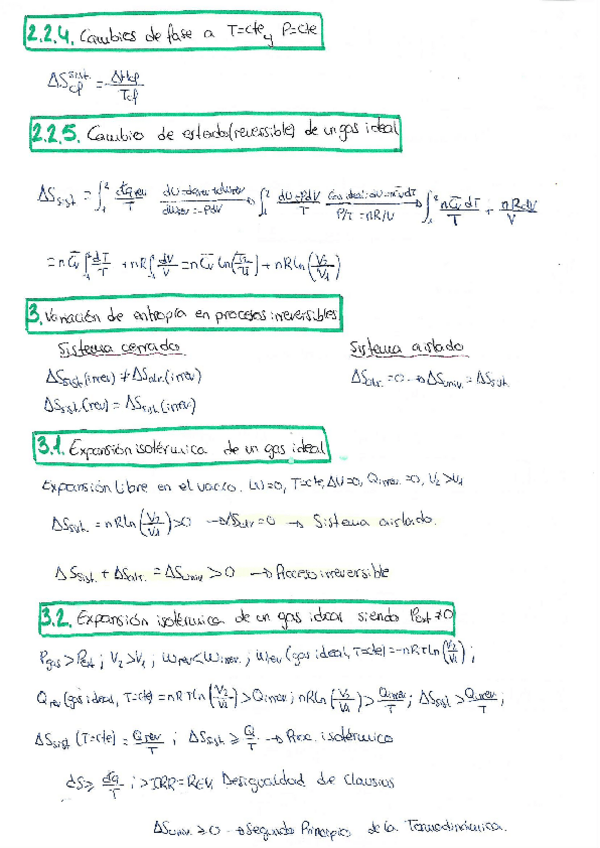 2.2.4. Cambios de fase a T=cte y P=cte
ΔS_cf^sist. = ΔH_cf / T_cf
2.2.5. Cambio de estado (reversible) de un gas ideal
ΔS_sist. = ∫₁² đq_rev/T —(dU=đqrev+đwrev / đwrev=-PdV)→ ∫₁² (dU+PdV)/T —(Gas ideal: dU=nC̄vdT / P/T=nR/V)→ ∫₁² nC̄vdT/T + nRdV/V
= nC̄v ∫₁² dT/T + nR ∫₁² dV/V = nC̄v ln(T₂/T₁) + nR ln(V₂/V₁)
3. Variación de entropía en procesos irreversibles
Sistema cerrado Sistema aislado
ΔS_sist.(irrev) ≠ ΔS_alr.(irrev) ΔS_alr. = 0 → ΔS_univ. = ΔS_sist.
ΔS_sist.(rev) = ΔS_sist.(irrev)
3.1. Expansión isotérmica de un gas ideal
Expansión libre en el vacío. W=0, T=cte, ΔU=0, Q_irrev. =0, V₂>V₁
ΔS_sist. = nR ln(V₂/V₁) >0 → ΔS_alr =0 → Sistema aislado.
ΔS_sist. + ΔS_alr. = ΔS_univ >0 → Proceso irreversible
3.2. Expansión isotérmica de un gas ideal siendo Pext ≠0
P_gas > P_ext ; V₂>V₁ ; W_rev < W_irrev. ; W_rev (gas ideal, T=cte) = -nRT ln(V₂/V₁) ;
Q_rev (gas ideal, T=cte) = nRT ln(V₂/V₁) > Q_irrev ; nR ln(V₂/V₁) > Q_irrev/T ; ΔS_sist > Q_irrev/T ;
ΔS_sist (T=cte) = Q_rev/T ; ΔS_sist. ≥ Q/T → Proc. isotérmico
dS ≥ đq/T ; > IRR = REV. Desigualdad de Clausius
ΔS_univ. ≥ 0 → Segundo Principio de la Termodinámica.